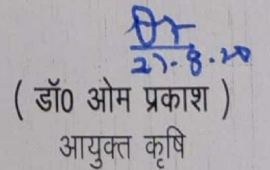 27.8.20
( डॉ0 ओम प्रकाश )
आयुक्त कृषि